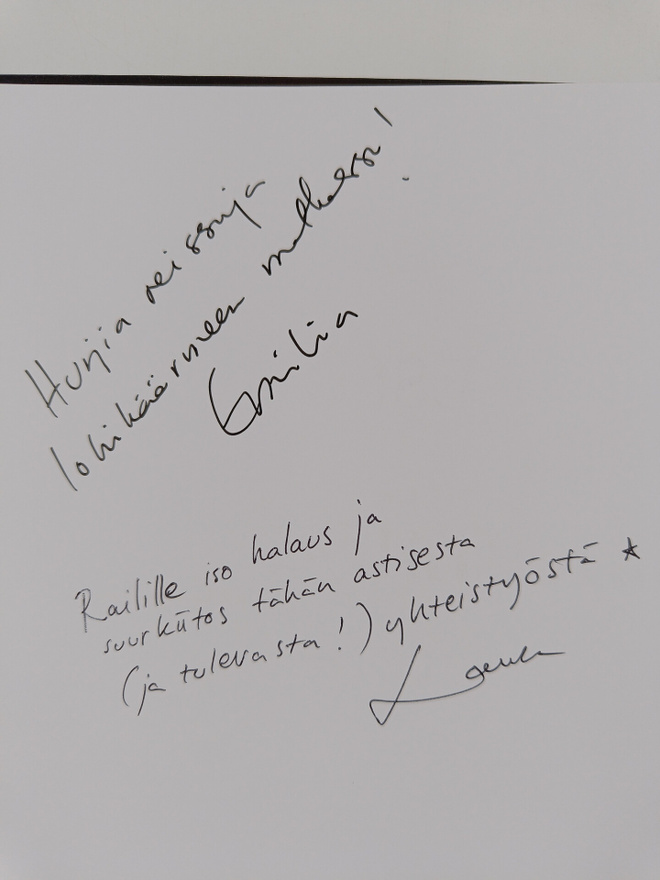 Hurjia reissuja
lohikäärmeen matkassa!
Emilia
Railille iso halaus ja
suurkiitos tähän astisesta
(ja tulevasta!) yhteistyöstä ★
Laura